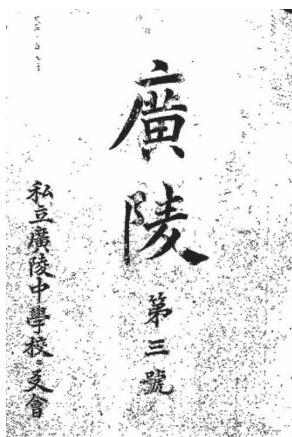 廣陵 第三號
私立廣陵中學校々友會